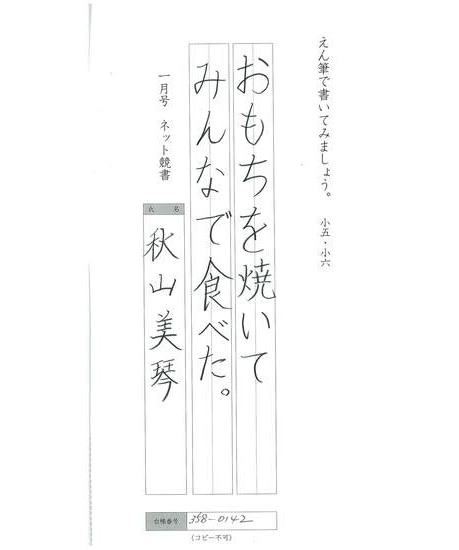 えん筆で書いてみましょう。 小五・小六
おもちを焼いて
みんなで食べた。
一月号 ネット競書
氏名
秋山美琴
台帳番号 358-0142
(コピー不可)